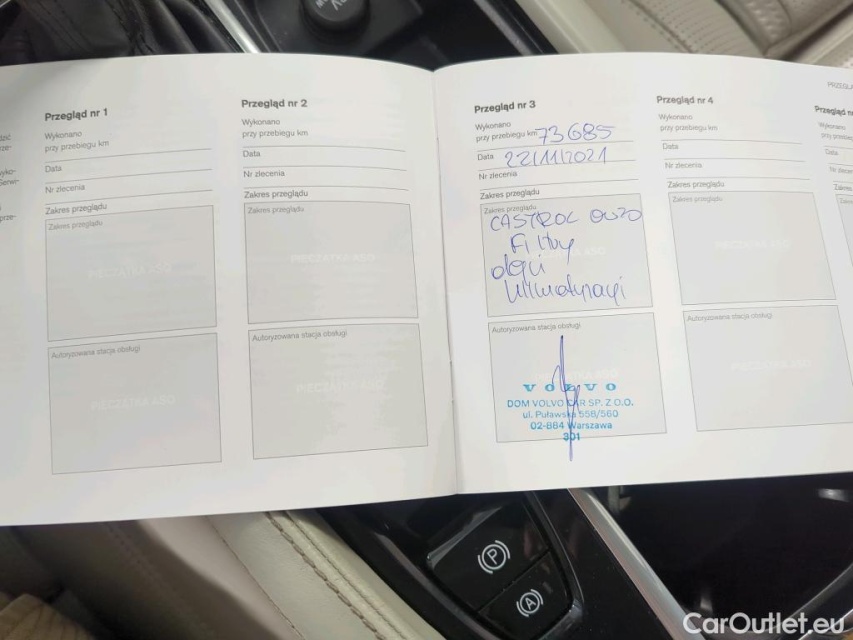 Przegląd nr 1
Wykonano
przy przebiegu km
Data
Nr zlecenia
Zakres przeglądu
Zakres przeglądu
PIECZĄTKA ASO
Autoryzowana stacja obsługi
PIECZĄTKA ASO
Przegląd nr 2
Wykonano
przy przebiegu km
Data
Nr zlecenia
Zakres przeglądu
Zakres przeglądu
PIECZĄTKA ASO
Autoryzowana stacja obsługi
PIECZĄTKA ASO
Przegląd nr 3
Wykonano
przy przebiegu km 73685
Data 22/11/2021
Nr zlecenia
Zakres przeglądu
Zakres przeglądu
CASTROL 0W20
Filtry
oleju
klimatyzacji
Autoryzowana stacja obsługi
VOLVO
DOM VOLVO CAR SP. Z O.O.
ul. Puławska 558/560
02-884 Warszawa
301
Przegląd nr 4
Wykonano
przy przebiegu km
Data
Nr zlecenia
Zakres przeglądu
Zakres przeglądu
Autoryzowana stacja obsługi
P
A
CarOutlet.eu